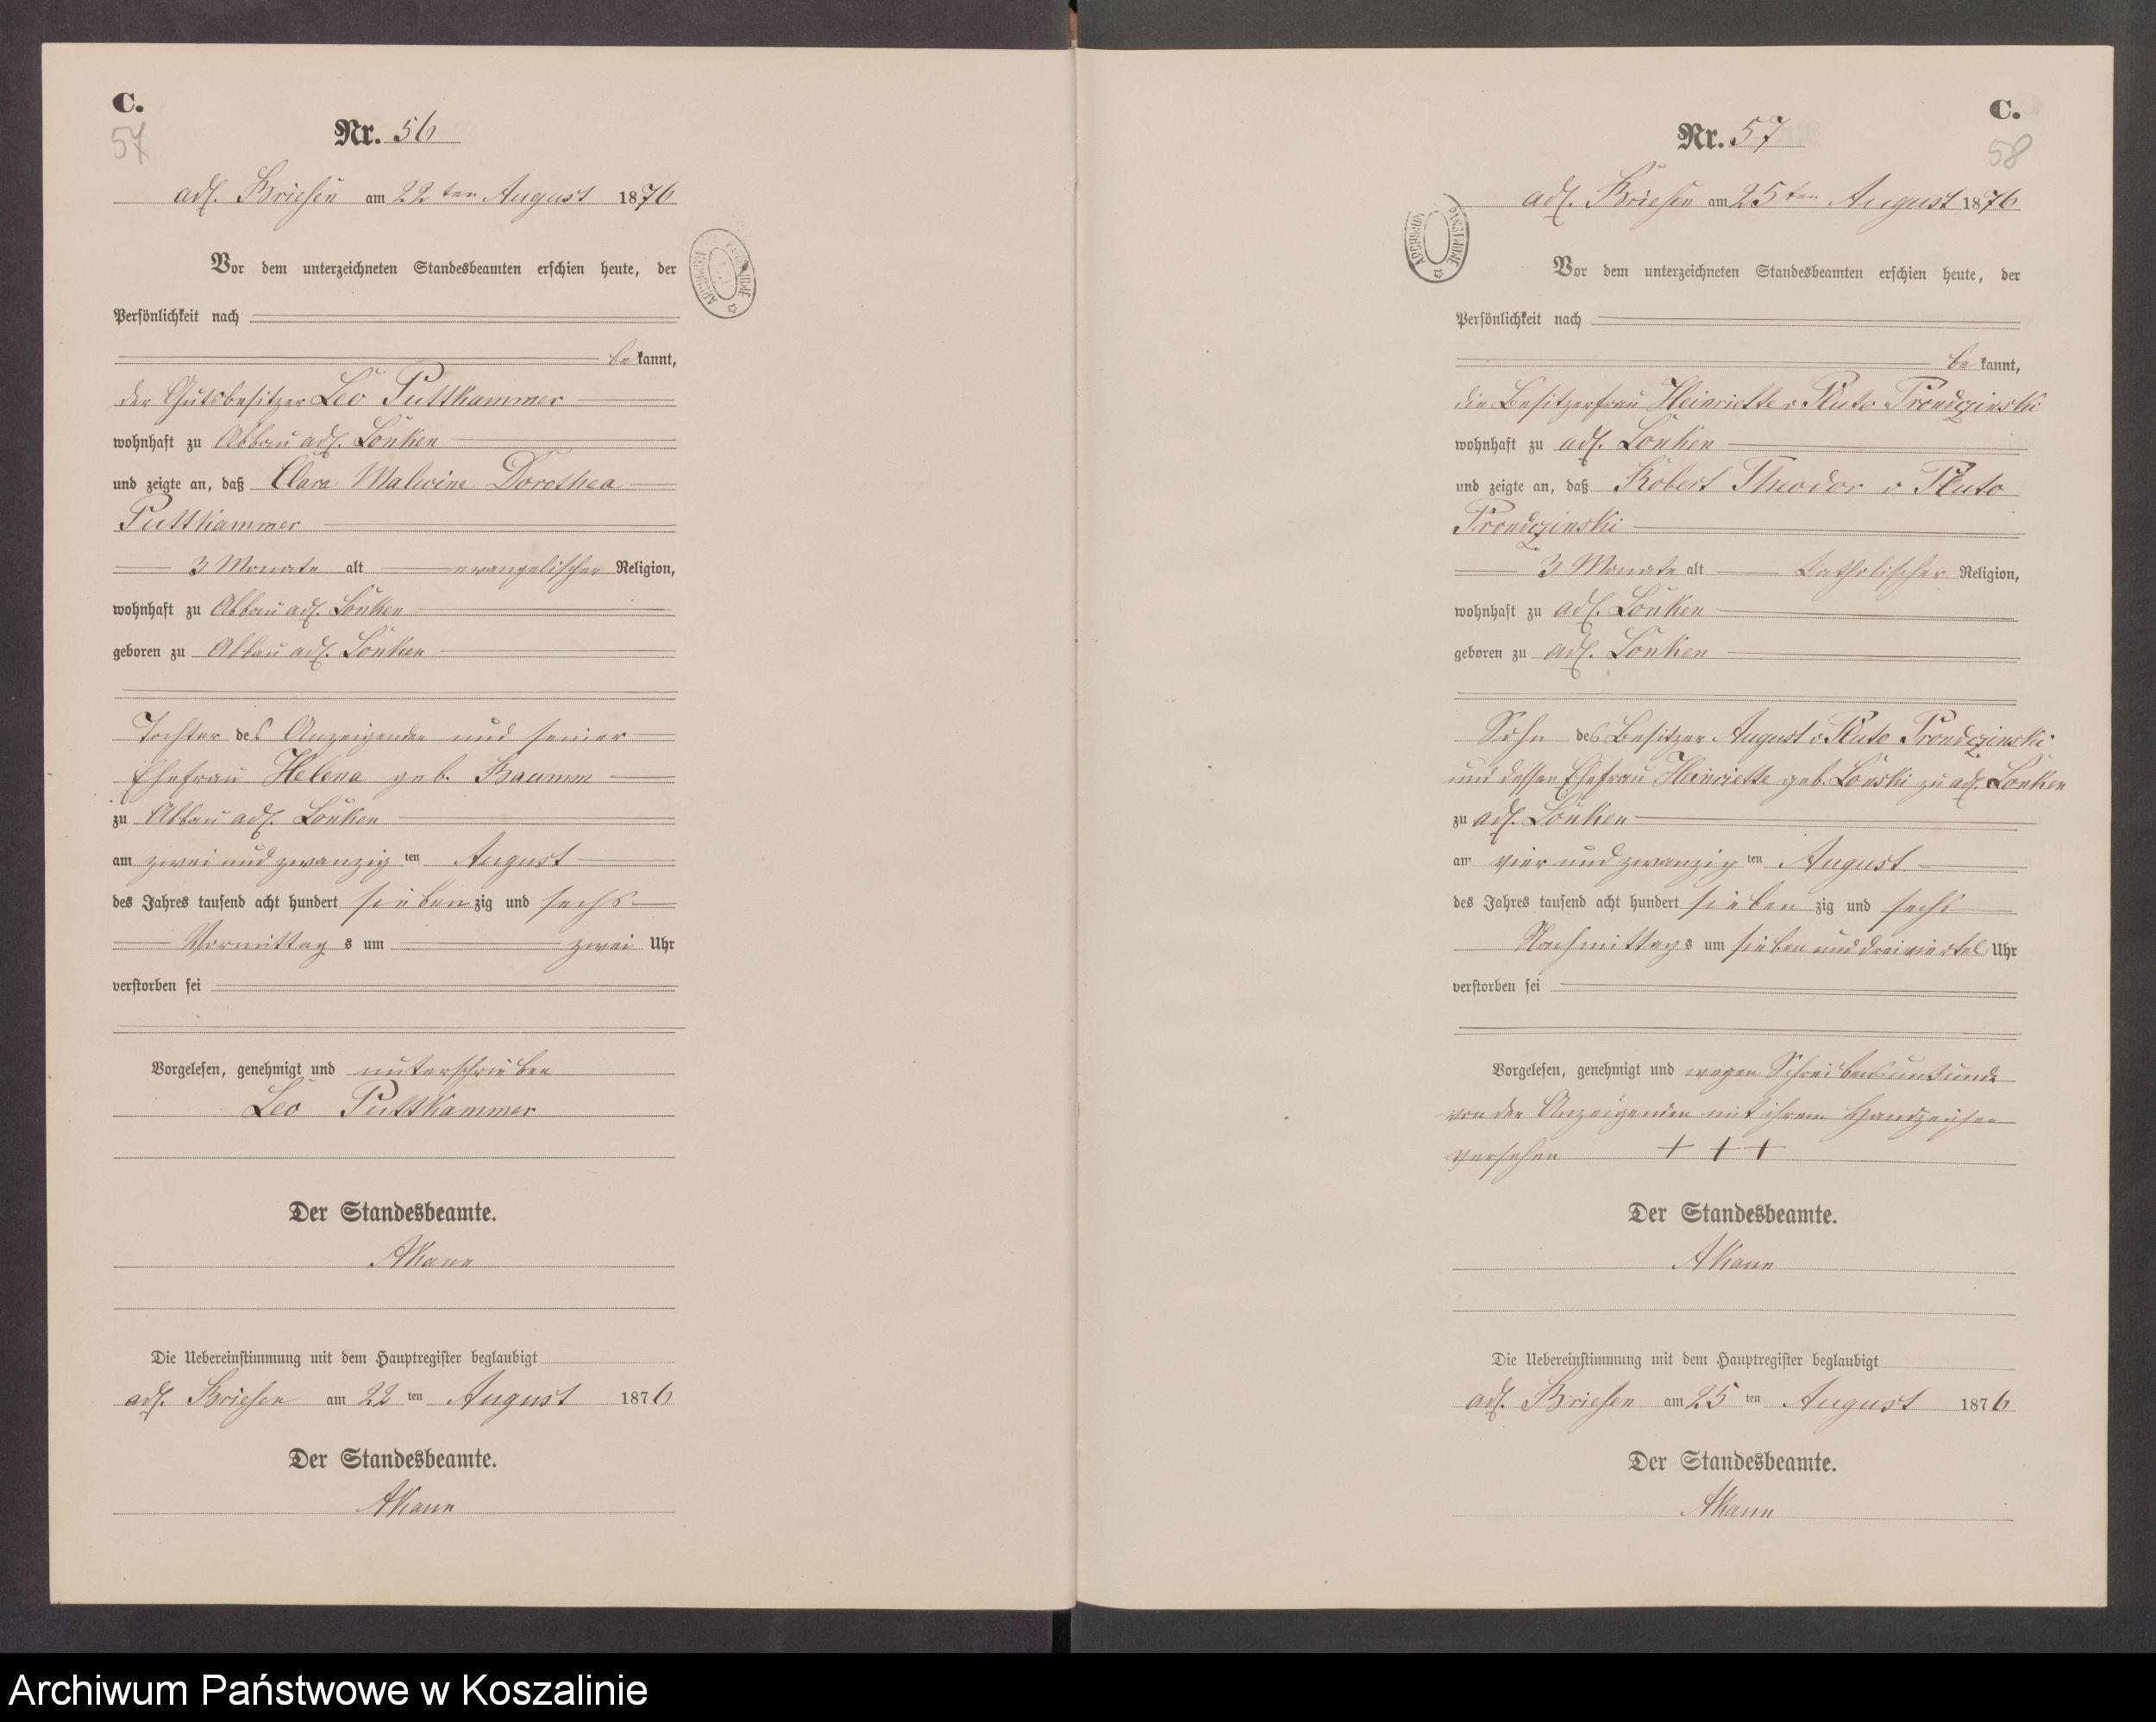 C.
57
Nr. 56
adl. Briesen am 22ten August 1876
Vor dem unterzeichneten Standesbeamten erschien heute, der
Persönlichkeit nach
be kannt,
der Gutsbesitzer Leo Puttkammer
wohnhaft zu Abbau adl. Lonken
und zeigte an, daß Clara Malwine Dorothea
Puttkammer
3 Monate alt evangelischer Religion,
wohnhaft zu Abbau adl. Lonken
geboren zu Abbau adl. Lonken
Tochter des Anzeigenden und seiner
Ehefrau Helena geb. Baumm
zu Abbau adl. Lonken
am zwei und zwanzig ten August
des Jahres tausend acht hundert sieben zig und sechs
Vormittag s um zwei Uhr
verstorben sei
Vorgelesen, genehmigt und unterschrieben
Leo Puttkammer
Der Standesbeamte.
AKann
Die Uebereinstimmung mit dem Hauptregister beglaubigt
adl. Briesen am 22 ten August 1876
Der Standesbeamte.
AKann
ARCHIWUM PAŃSTWOWE
C.
58
Nr. 57
adl. Briesen am 25ten August 1876
ARCHIWUM PAŃSTWOWE
Vor dem unterzeichneten Standesbeamten erschien heute, der
Persönlichkeit nach
be kannt,
die Besitzerfrau Heinriette v Pluto Prondzinski
wohnhaft zu adl. Lonken
und zeigte an, daß Robert Theodor v Pluto
Prondzinski
3 Monate alt katholischer Religion,
wohnhaft zu adl. Lonken
geboren zu adl. Lonken
Sohn des Besitzer August v Pluto Prondzinski
und dessen Ehefrau Heinriette geb. Lonski zu adl. Lonken
zu adl. Lonken
am vier und zwanzig ten August
des Jahres tausend acht hundert sieben zig und sechs
Nachmittags um sieben und dreiviertel Uhr
verstorben sei
Vorgelesen, genehmigt und wegen Schreibensunkunde
von der Anzeigenden mit ihrem Handzeichen
versehen + + +
Der Standesbeamte.
AKann
Die Uebereinstimmung mit dem Hauptregister beglaubigt
adl. Briesen am 25 ten August 1876
Der Standesbeamte.
AKann
Archiwum Państwowe w Koszalinie